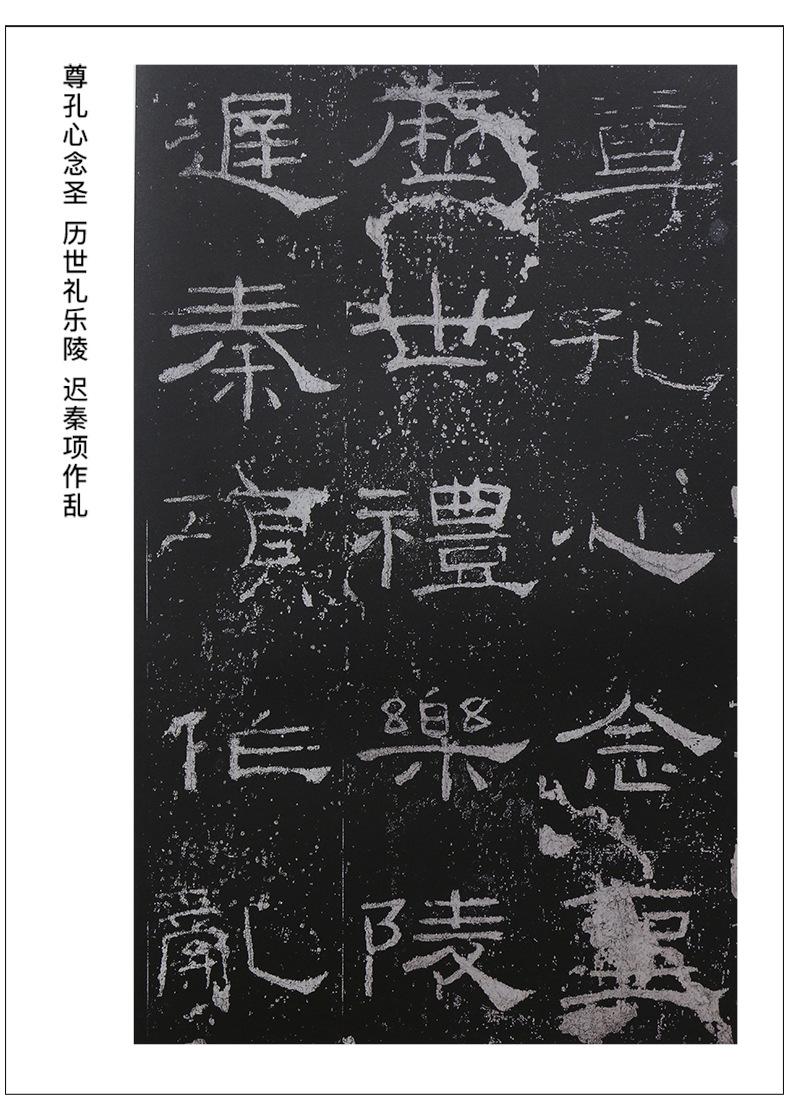 尊孔心念圣 历世礼乐陵 迟秦项作乱
尊孔心念聖
歷世禮樂陵
遟秦項作亂